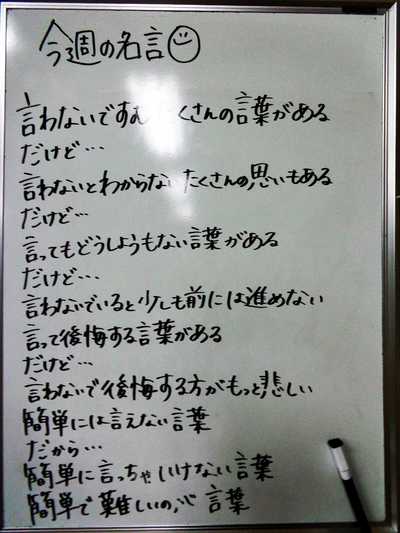 今週の名言
言わないですむたくさんの言葉がある
だけど…
言わないとわからないたくさんの思いもある
だけど…
言ってもどうしようもない言葉がある
だけど…
言わないでいると少しも前には進めない
言って後悔する言葉がある
だけど…
言わないで後悔する方がもっと悲しい
簡単には言えない言葉
だから…
簡単に言っちゃいけない言葉
簡単で難しいの、言葉